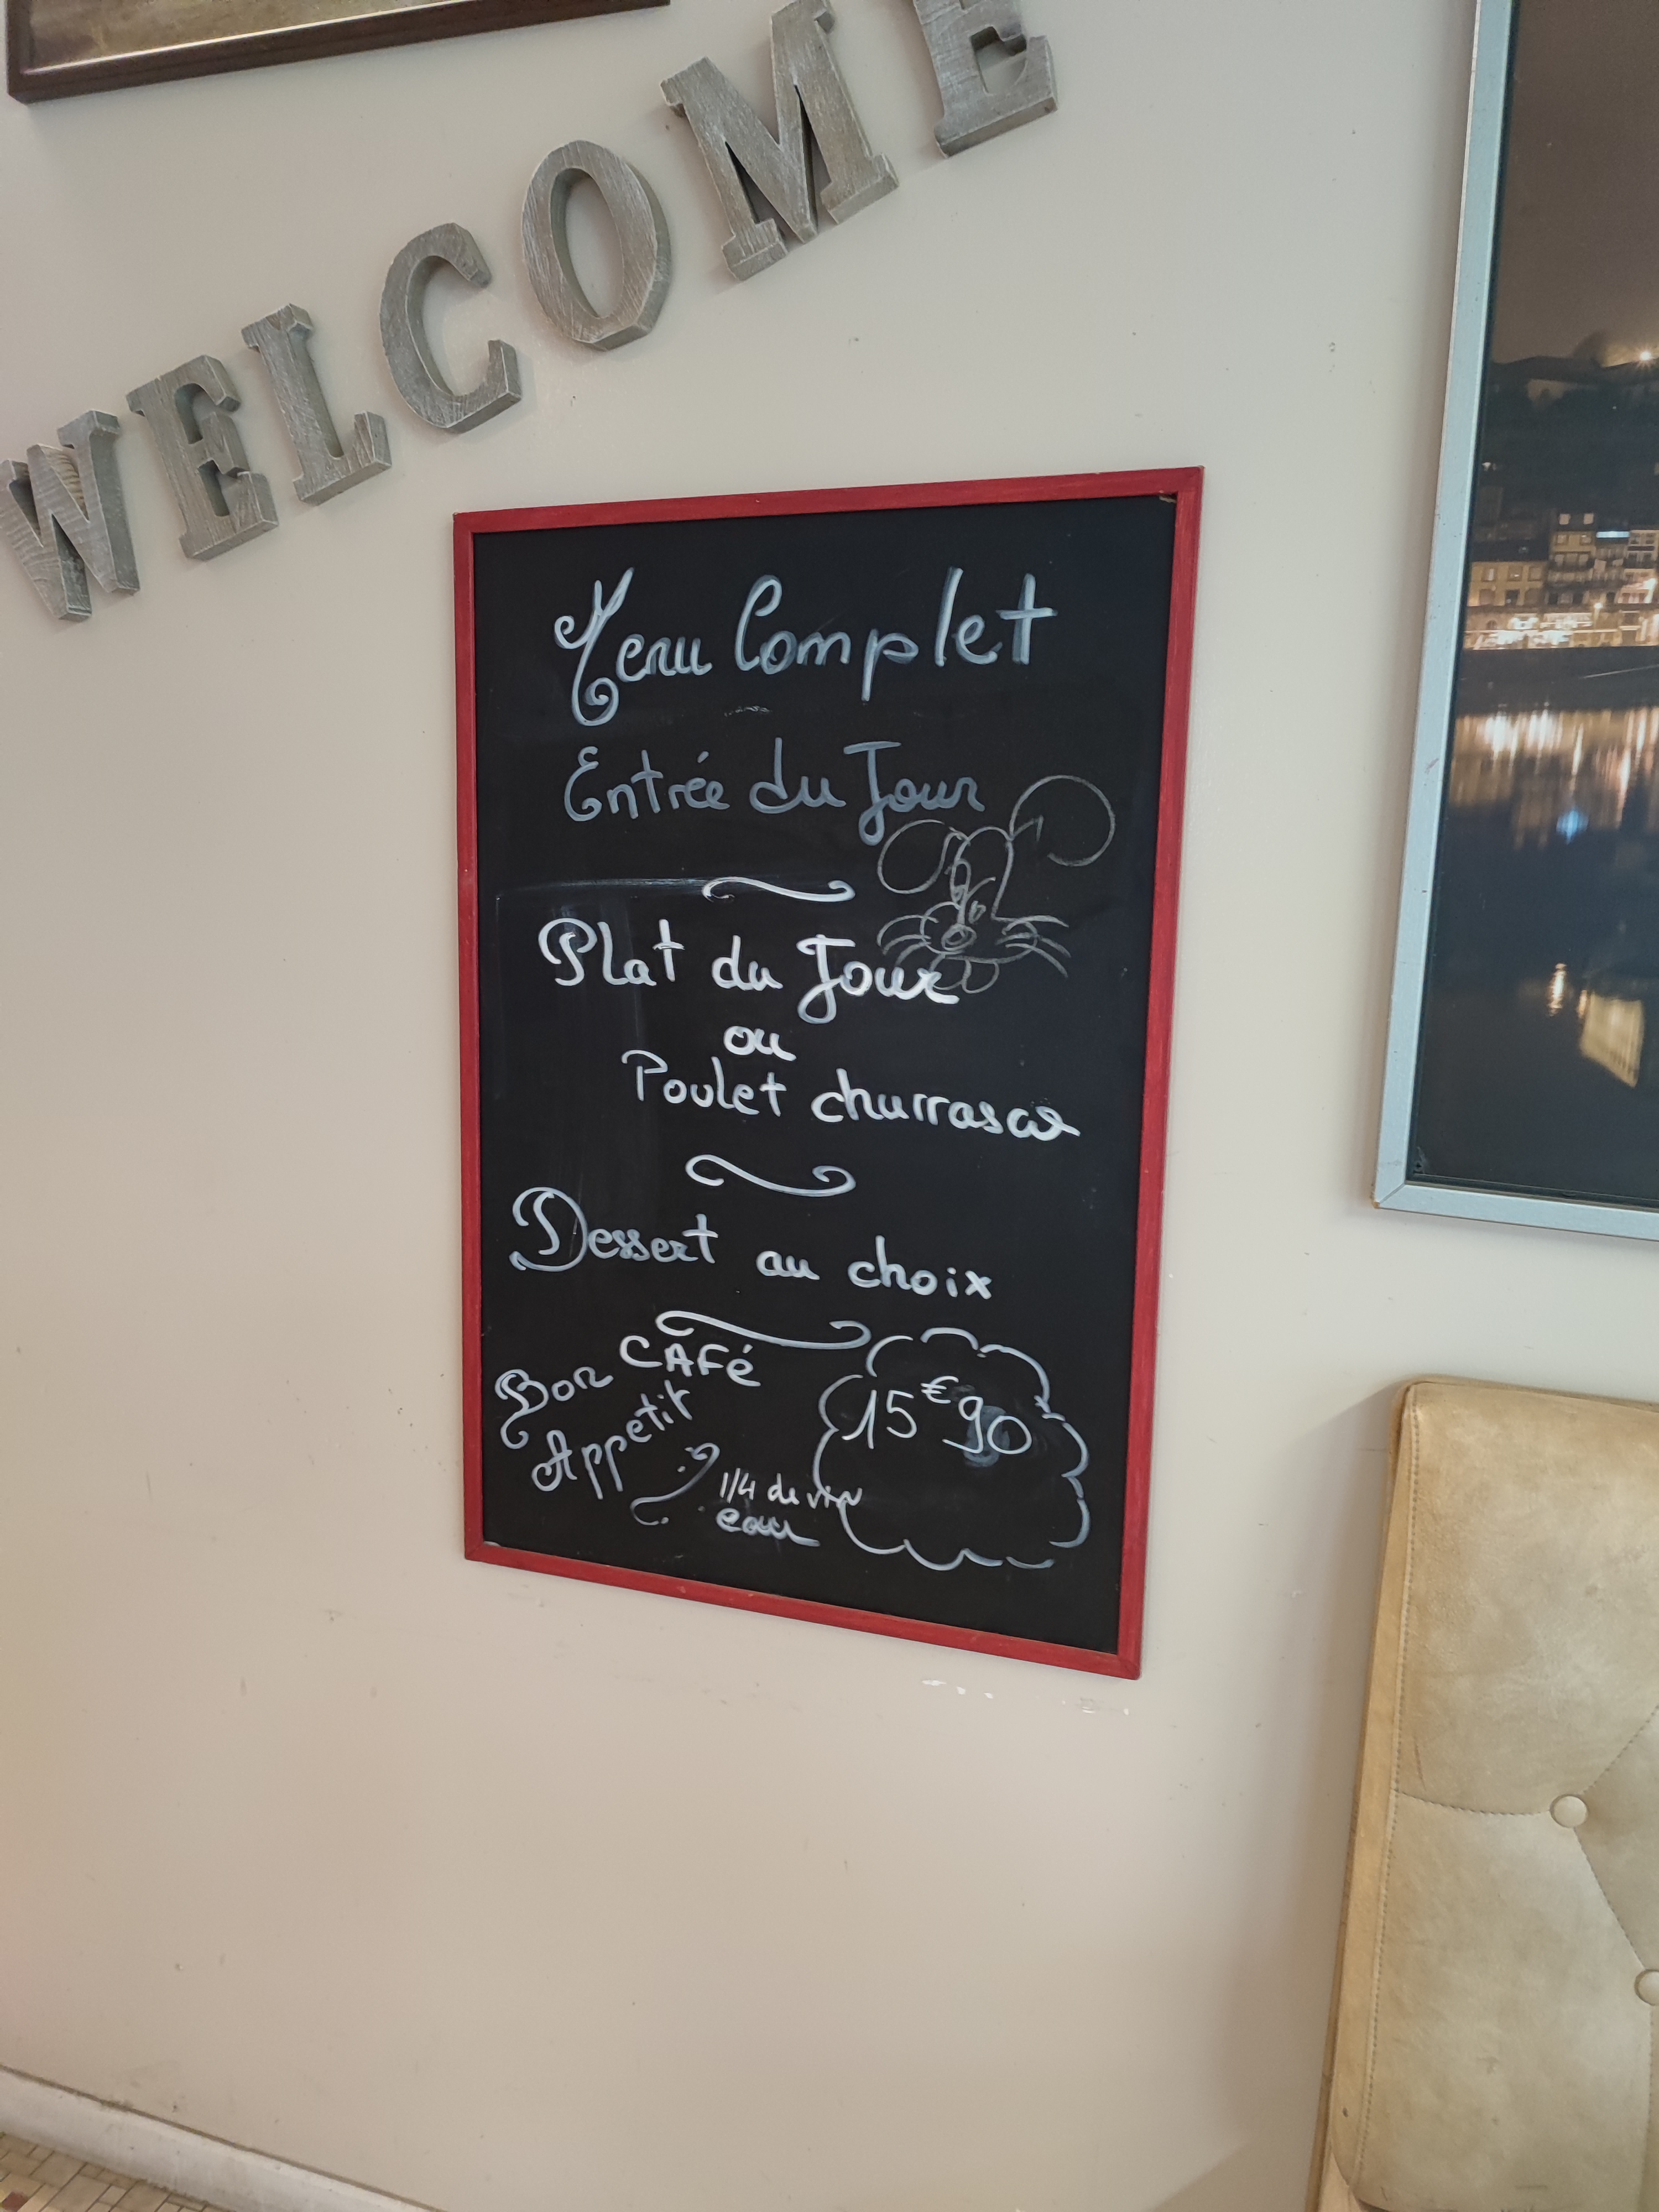 WELCOME
Menu Complet
Entrée du Jour
Plat du Jour
ou
Poulet churrasco
Dessert au choix
CAFÉ
Bon
Appetit
15€90
1/4 de vin
eau